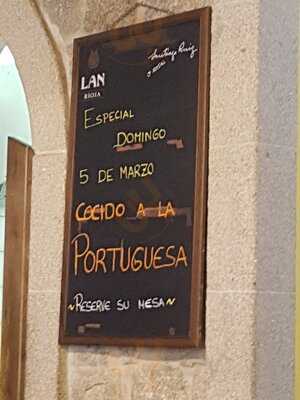 Santiago Ruiz
LAN
RIOJA
ESPECIAL
DOMINGO
5 DE MARZO
COCIDO A LA
PORTUGUESA
~RESERVE SU MESA~